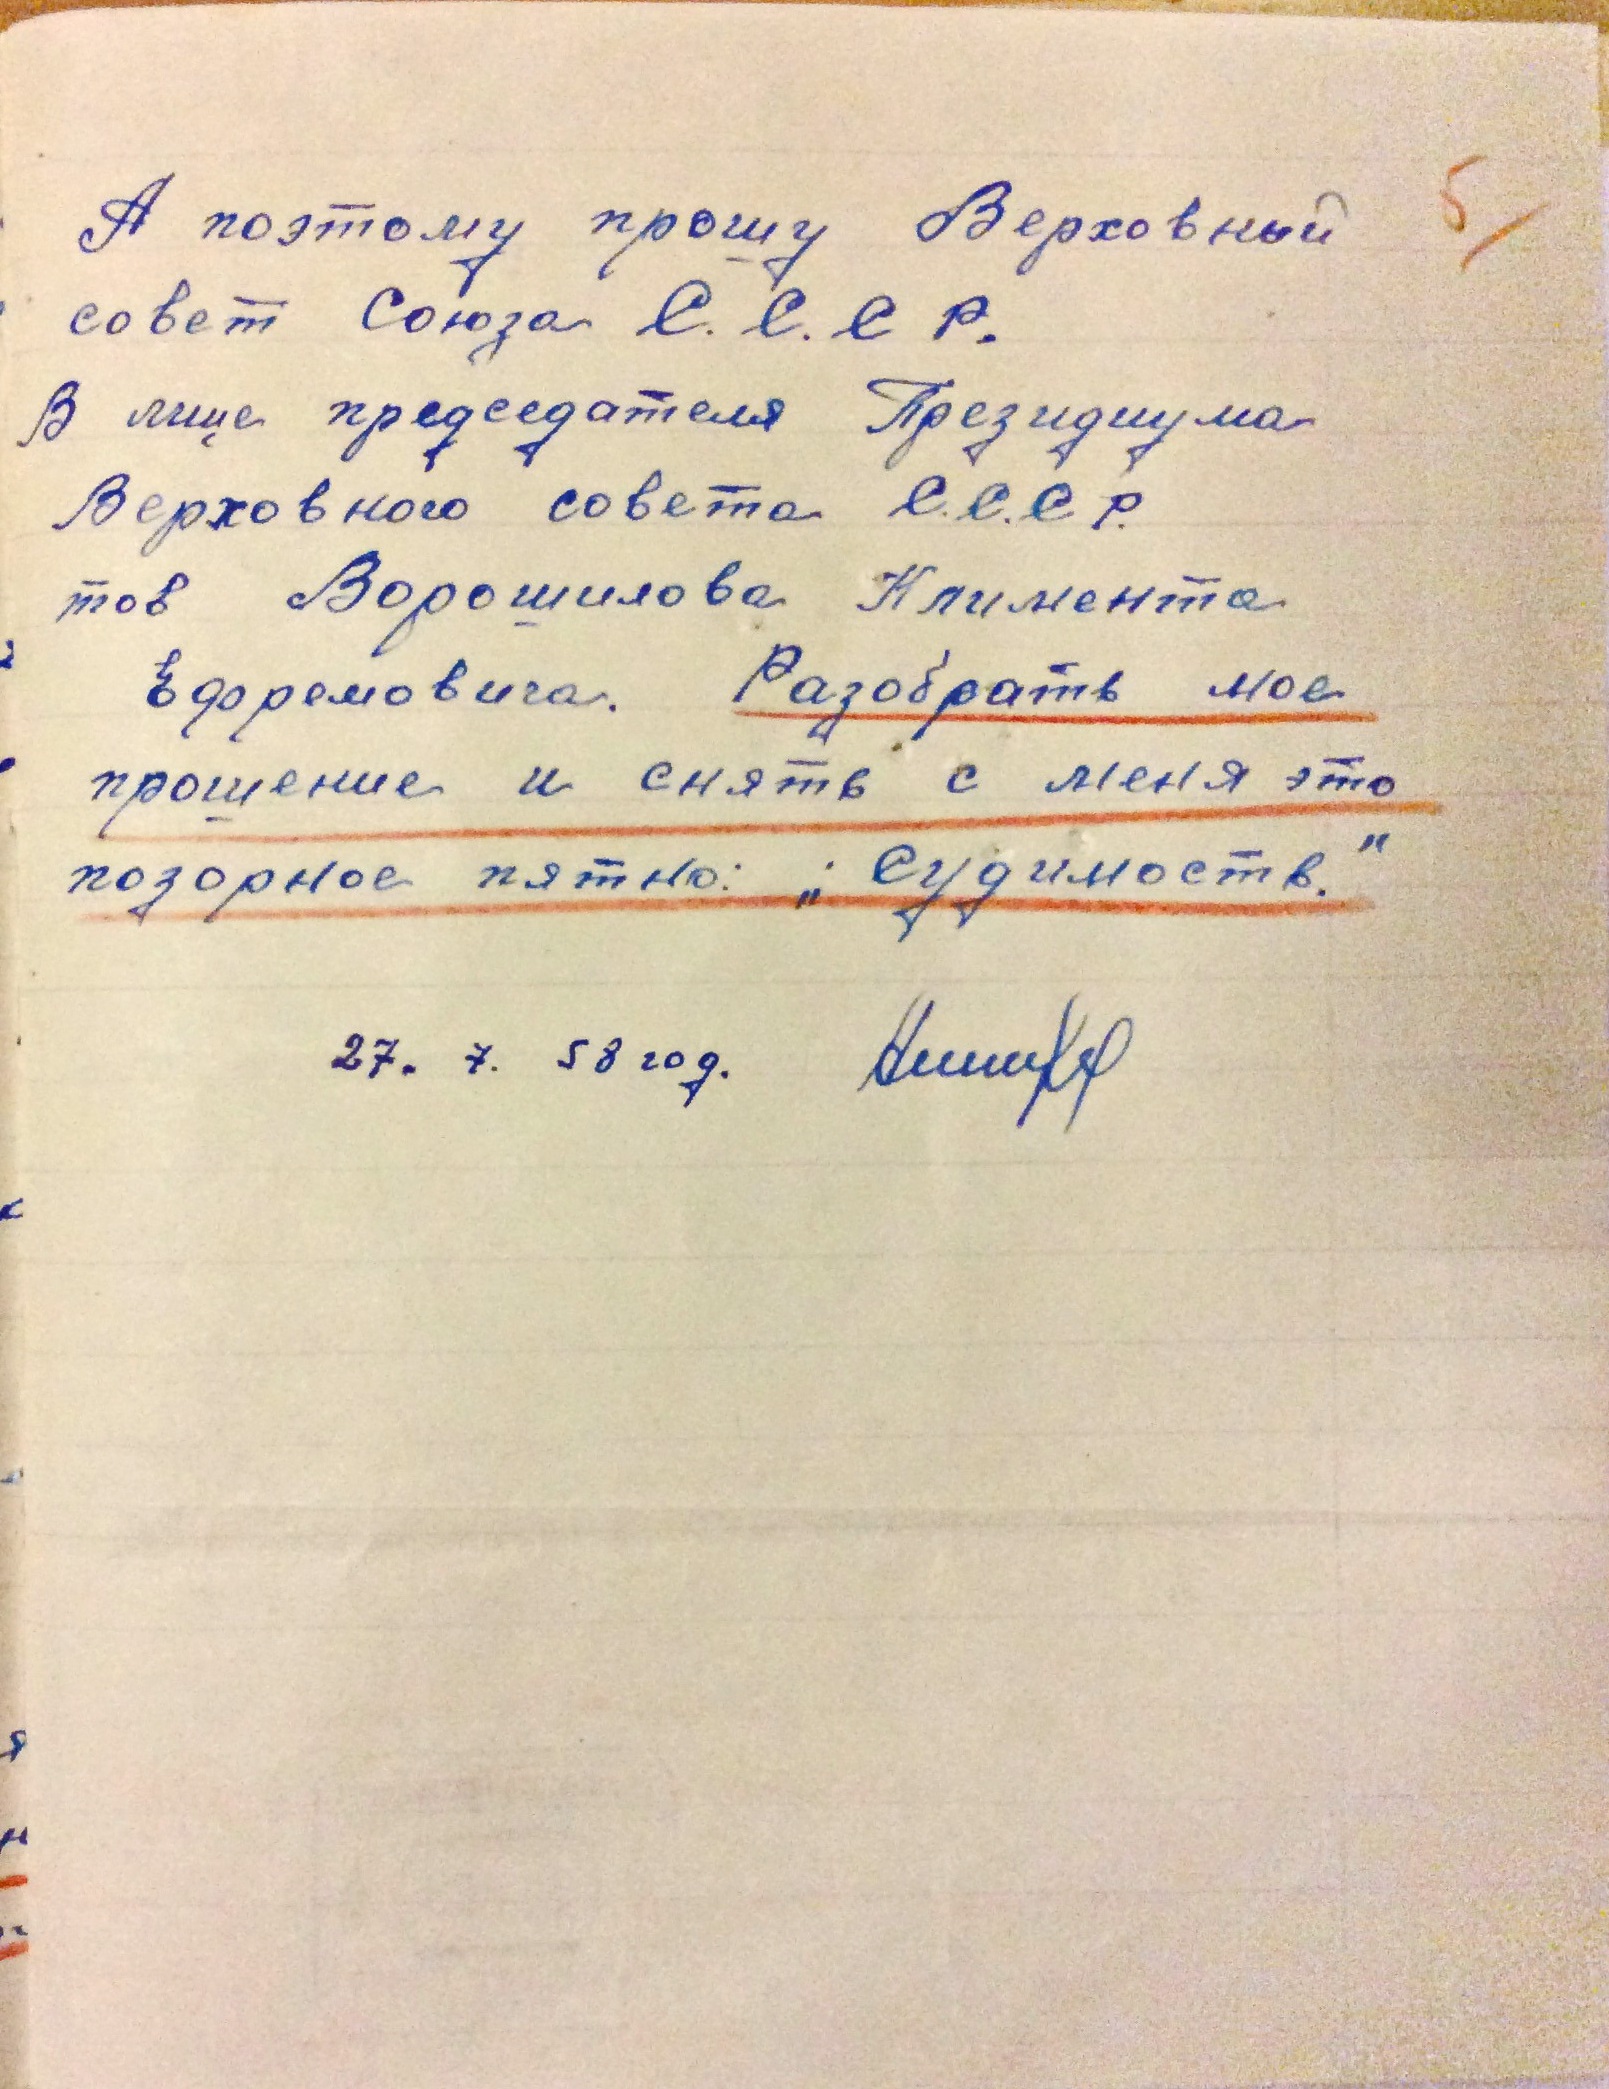 5
А поэтому прошу Верховный
совет Союза С. С. С Р.
В лице председателя Президиума
Верховного совета С.С.С Р.
тов Ворошилова Климента
Ефремовича. Разобрать мое
прошение и снять с меня это
позорное пятно: „Судимость."
27. 7. 58 год.